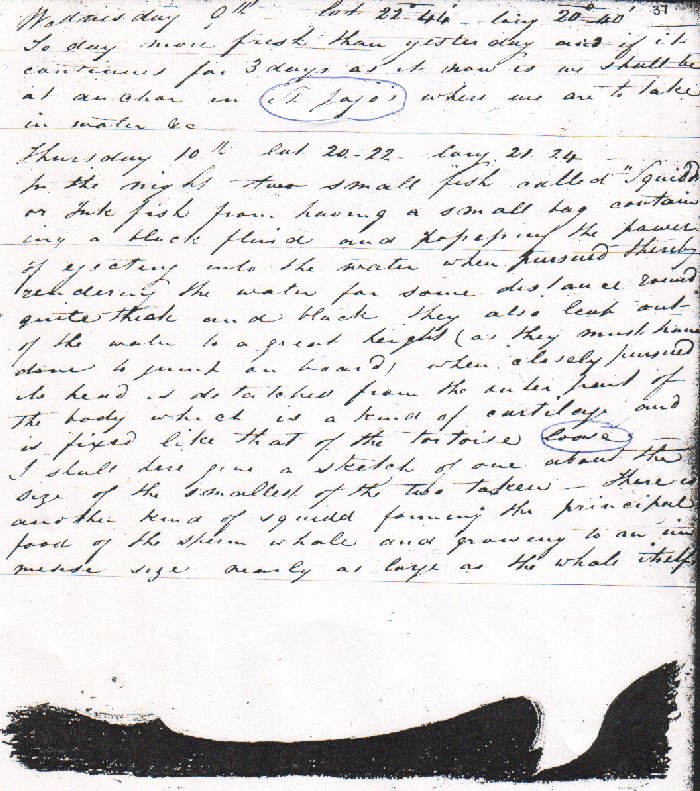 37
Wednesday 9th lat 22° 44' long 20° 40'
To day more fresh than yesterday and if it
continues for 3 days as it now is we shall be
at anchor in St Jajo's where we are to take
in water &c
Thursday 10th lat 20-22- long 21.24 -
In the night two small fish called "Squidd
or Ink fish from having a small bag contain
ing a black fluid and possessing the power
of ejecting into the water when pursued thereby
rendering the water for some distance round
quite thick and black they also leap out
of the water to a great height (as they must have
done to jump on board) when closely pursued
its head is detatched from the outer part of
the body which is a kind of cartilage and
is fixed like that of the tortoise loose
I shall here give a sketch of one about the
size of the smallest of the two taken - there is
another kind of squidd forming the principal
food of the sperm whale and growing to an im
mense size nearly as large as the whale itself